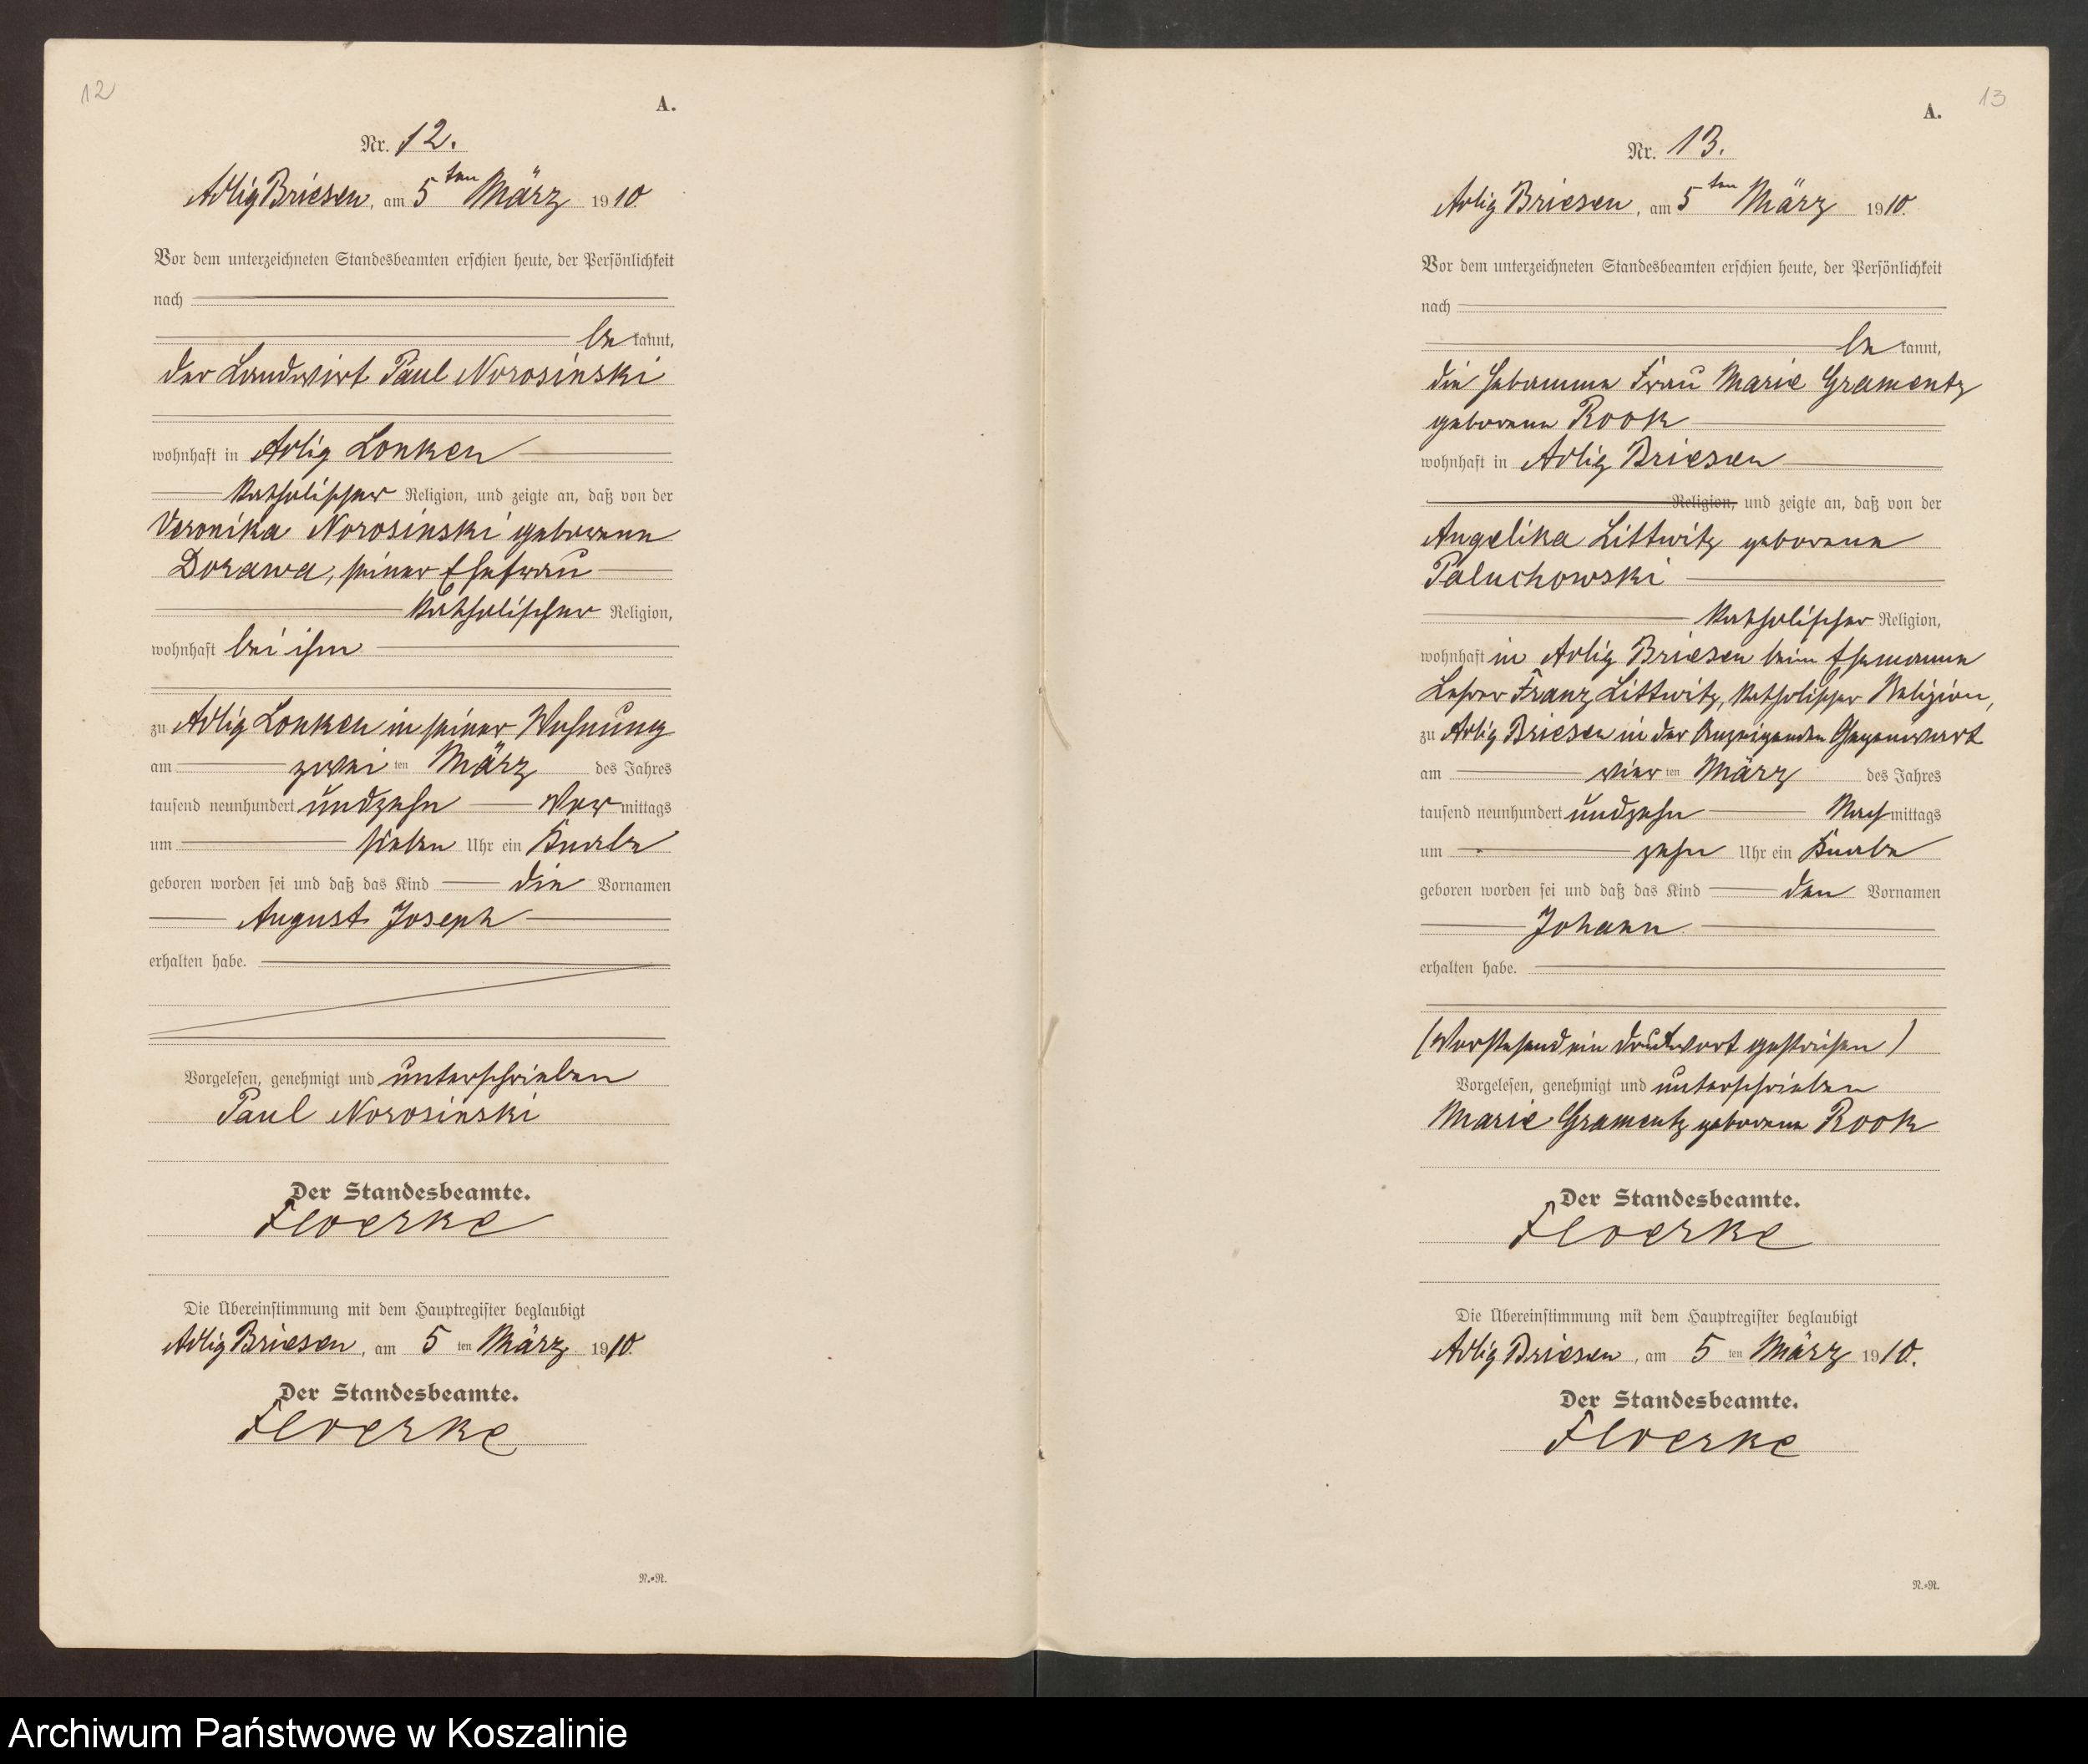 12
A.
Nr. 12.
Adlig Briesen, am 5ten März 1910.
Vor dem unterzeichneten Standesbeamten erschien heute, der Persönlichkeit
nach
be kannt,
der Landwirt Paul Norosinski
wohnhaft in Adlig Lonken
katholischer Religion, und zeigte an, daß von der
Veronika Norosinski geborene
Dorawa, seiner Ehefrau
katholischer Religion,
wohnhaft bei ihm
zu Adlig Lonken in seiner Wohnung
am zwei ten März des Jahres
tausend neunhundert undzehn Vor mittags
um sieben Uhr ein Knabe
geboren worden sei und daß das Kind die Vornamen
August Joseph
erhalten habe.
Vorgelesen, genehmigt und unterschrieben
Paul Norosinski
Der Standesbeamte.
Floerke
Die Übereinstimmung mit dem Hauptregister beglaubigt
Adlig Briesen, am 5 ten März 1910.
Der Standesbeamte.
Floerke
N.-N.
13
A.
Nr. 13.
Adlig Briesen, am 5ten März 1910.
Vor dem unterzeichneten Standesbeamten erschien heute, der Persönlichkeit
nach
be kannt,
die Hebamme Frau Marie Gramentz
geborene Rook
wohnhaft in Adlig Briesen
Religion, und zeigte an, daß von der
Angelika Littwitz geborene
Paluchowski
katholischer Religion,
wohnhaft in Adlig Briesen beim Ehemanne
Lehrer Franz Littwitz, katholischer Religion,
zu Adlig Briesen in der Anzeigenden Gegenwart
am vier ten März des Jahres
tausend neunhundert undzehn Nach mittags
um zehn Uhr ein Knabe
geboren worden sei und daß das Kind den Vornamen
Johann
erhalten habe.
(Vorstehend ein Druckwort gestrichen)
Vorgelesen, genehmigt und unterschrieben
Marie Gramentz geborene Rook
Der Standesbeamte.
Floerke
Die Übereinstimmung mit dem Hauptregister beglaubigt
Adlig Briesen, am 5 ten März 1910.
Der Standesbeamte.
Floerke
N.-N.
Archiwum Państwowe w Koszalinie